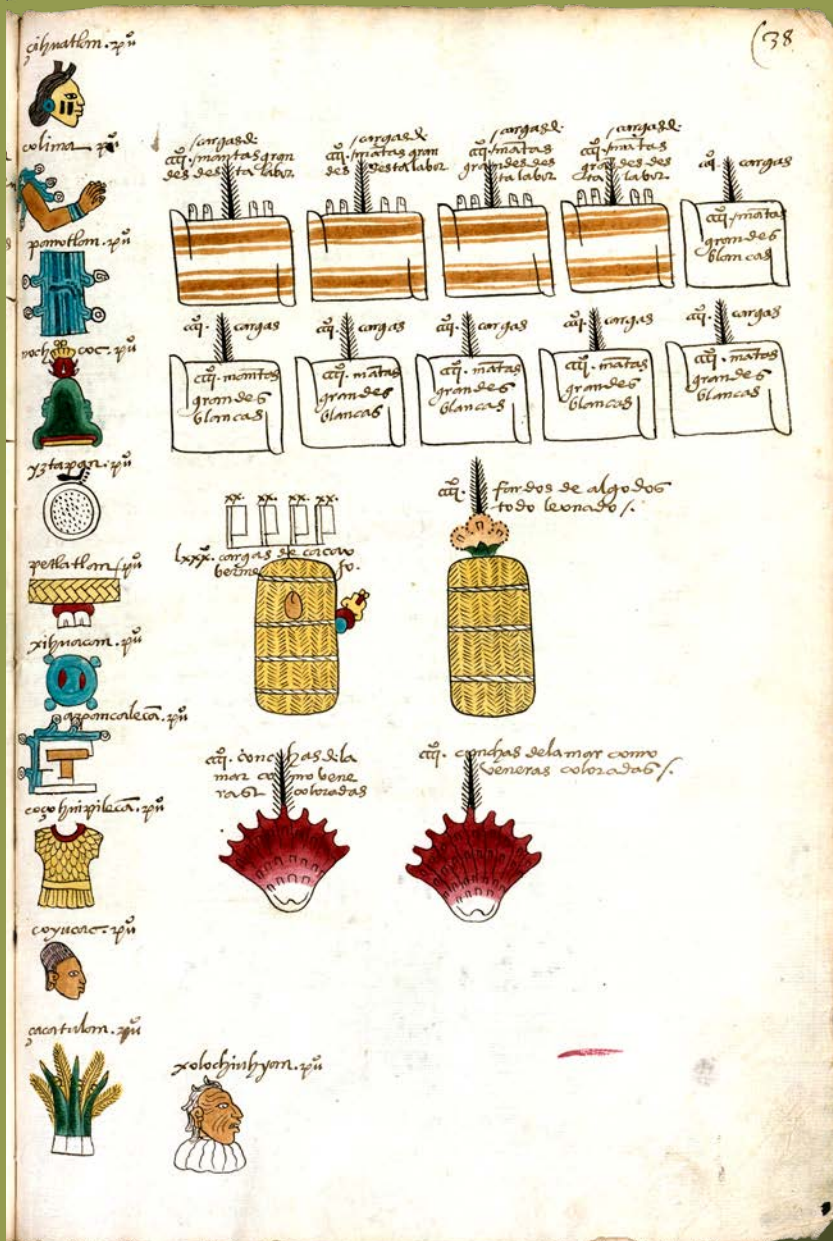 (38
çihuatlan. pu°
colima pu°
panotlan. pu°
noch coc. pu°
yztapan. pu°
petlatlan / pu°
xihuacan. pu°
apancalecã. pu°
coçohuipilecã. pu°
coyucac. pu°
çacatulan. pu°
xolochiuhyan. pu°
/ cargas de
cccc°. mantas gran
des desta labor
/ cargas de
cccc°. mãtas gran
des desta labor
/ cargas de
cccc°. matas
grandes des
ta labor
/ cargas de
cccc°. mãtas
grandes des
ta labor
cccc°. cargas
cccc°. mãtas
grandes
blancas
cccc°. cargas
cccc°. mantas
grandes
blancas
cccc°. cargas
cccc°. mãtas
grandes
blancas
cccc°. cargas
cccc°. mãtas
grandes
blancas
cccc°. cargas
cccc°. mãtas
grandes
blancas
cccc°. cargas
cccc°. mãtas
grandes
blancas
xx. xx. xx. xx.
lxxx°. cargas de cacao
berme jo.
cccc°. fardos de algodo
todo leonado /.
cccc°. conchas de la
mar como vene
ras coloradas
cccc°. conchas de la mar como
veneras coloradas /.